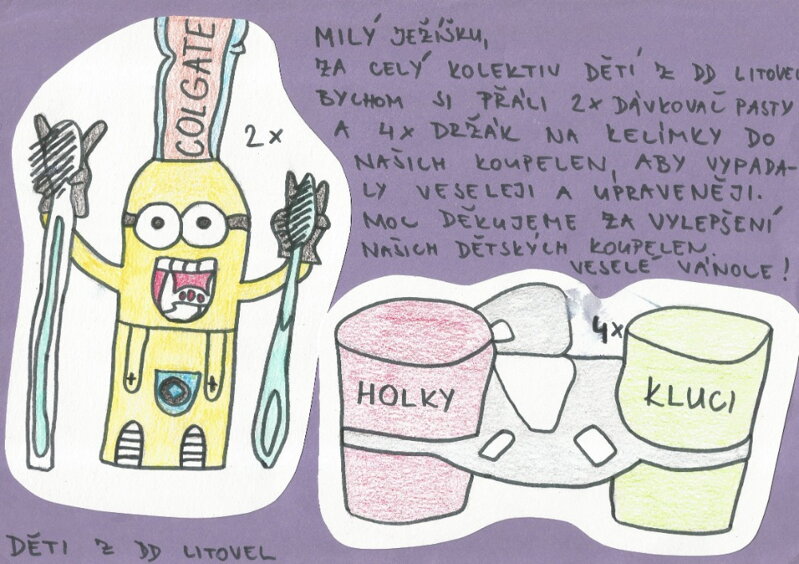 MILÝ JEŽÍŠKU,
ZA CELÝ KOLEKTIV DĚTÍ Z DD LITOVEL
BYCHOM SI PŘÁLI 2X DÁVKOVAČ PASTY
A 4X DRŽÁK NA KELÍMKY DO
NAŠICH KOUPELEN, ABY VYPADA-
LY VESELEJI A UPRAVENĚJI.
MOC DĚKUJEME ZA VYLEPŠENÍ
NAŠICH DĚTSKÝCH KOUPELEN.
VESELÉ VÁNOCE!
COLGATE
2x
4x
HOLKY
KLUCI
DĚTI Z DD LITOVEL